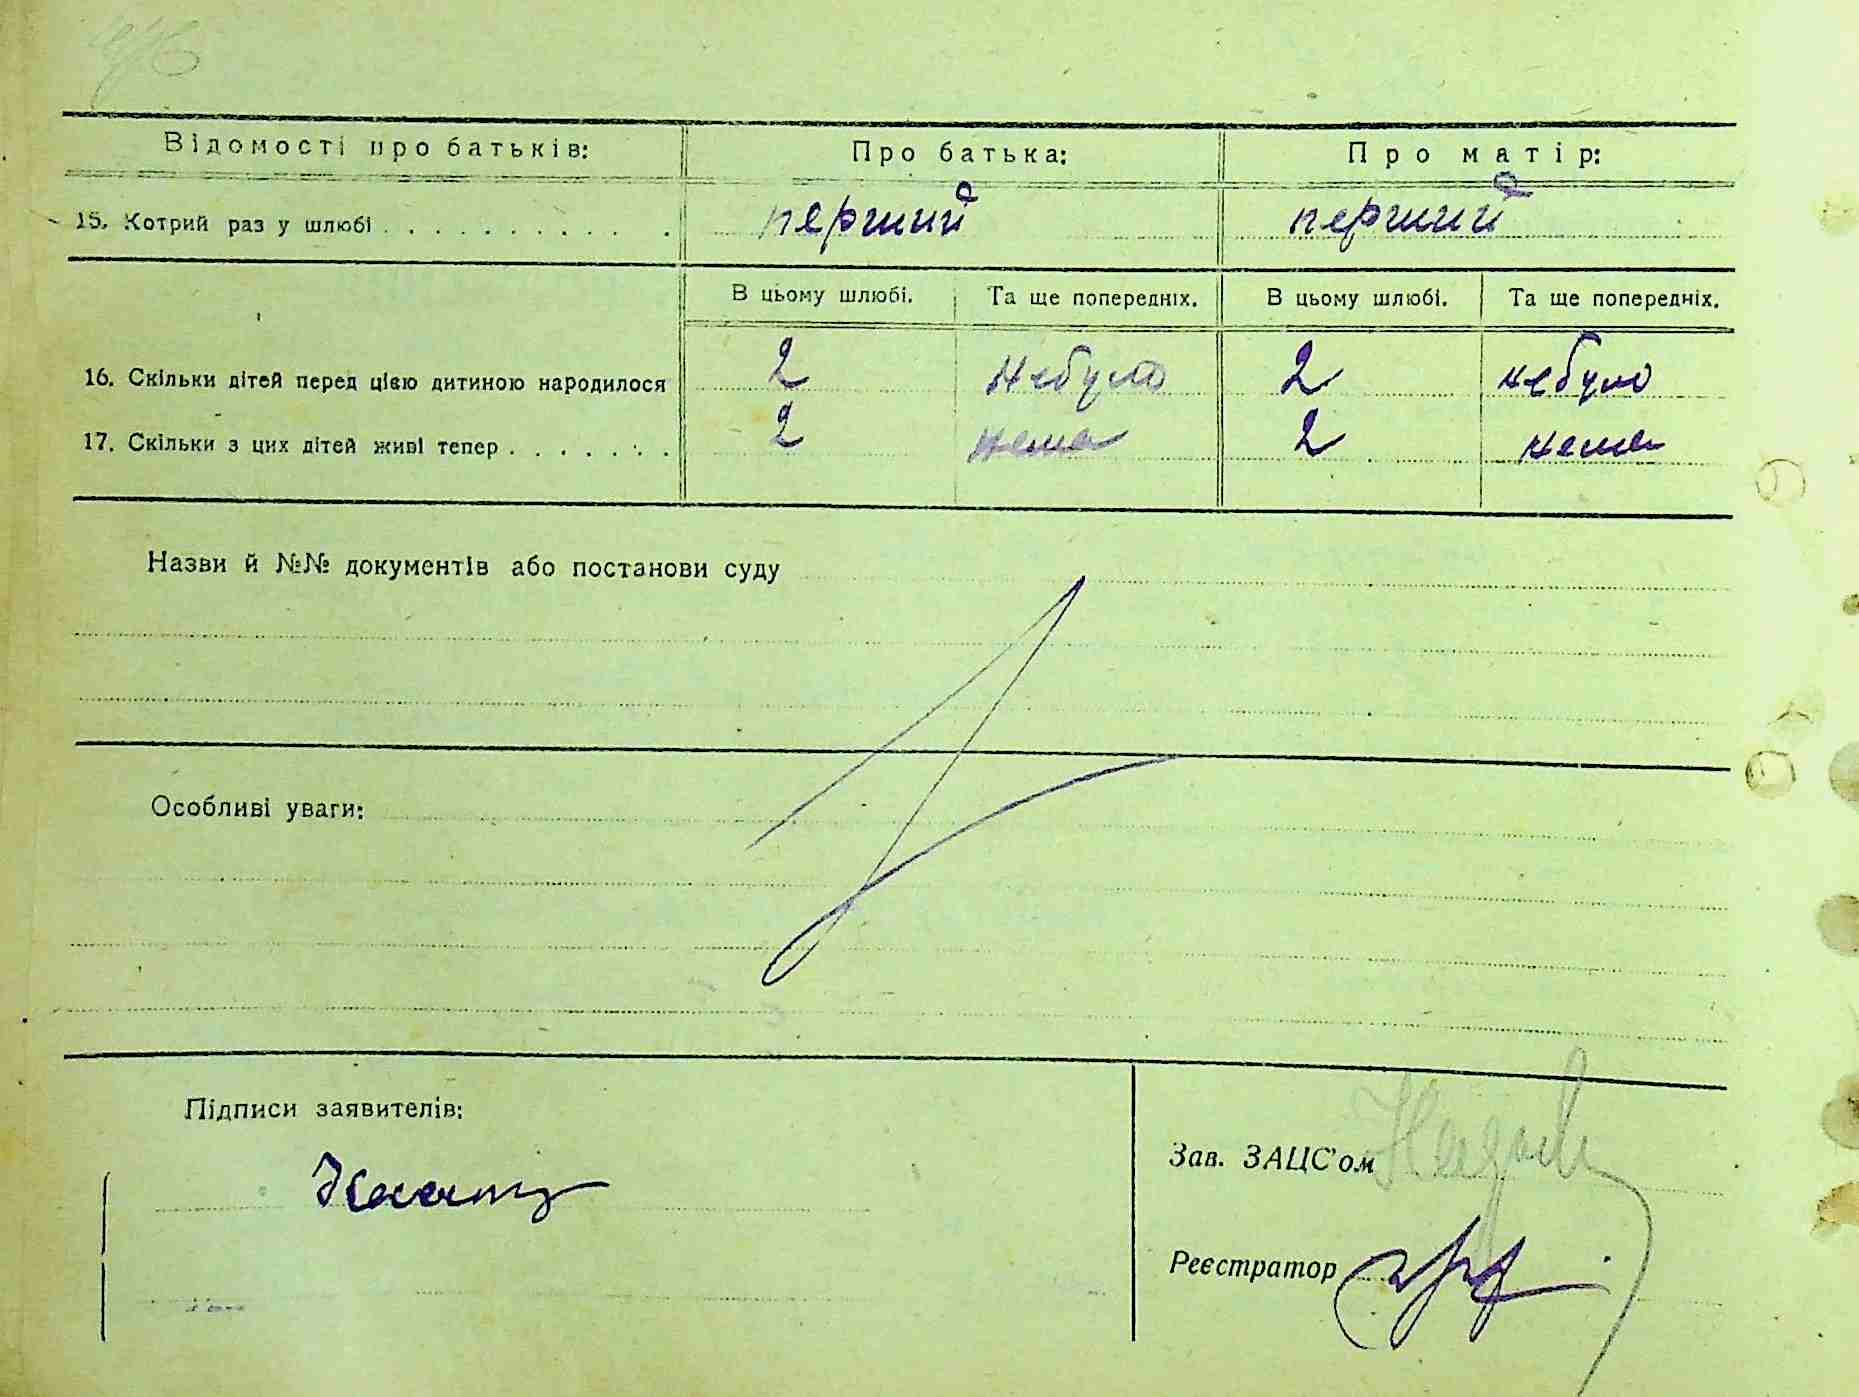 Відомості про батьків: Про батька: Про матір:
15. Котрий раз у шлюбі перший перший
В цьому шлюбі. Та ще попередніх. В цьому шлюбі. Та ще попередніх.
16. Скільки дітей перед цією дитиною народилося 2 небуло 2 небуло
17. Скільки з цих дітей живі тепер 2 нема 2 нема
Назви й №№ документів або постанови суду
Особливі уваги:
Підписи заявителів:
Зав. ЗАЦС'ом
Реєстратор